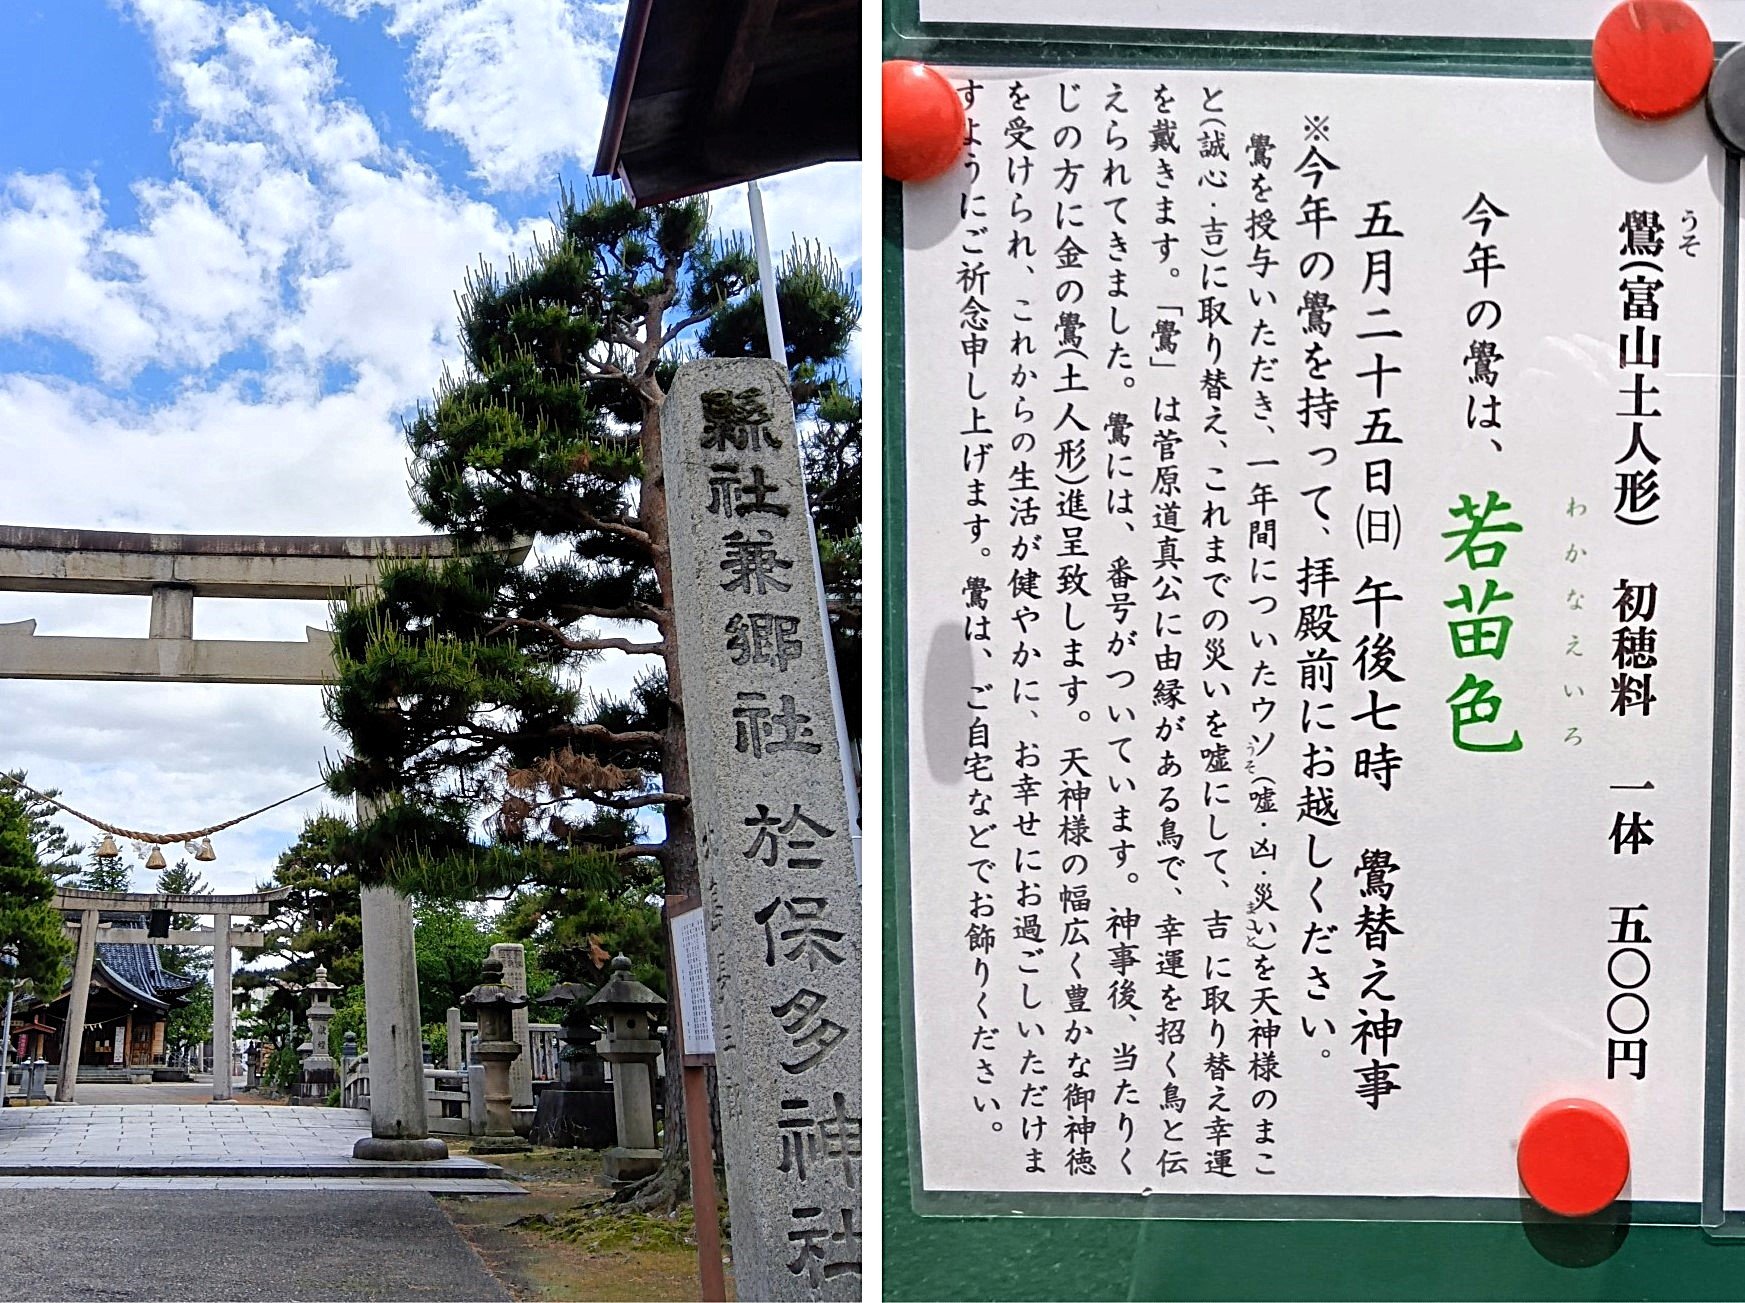 縣社兼郷社 於保多神社
うそ
鷽(富山土人形) 初穂料 一体 五〇〇円
わかなえいろ
今年の鷽は、若苗色
五月二十五日(日) 午後七時 鷽替え神事
※今年の鷽を持って、拝殿前にお越しください。
鷽を授与いただき、一年間についたウソ(嘘・凶・災い)を天神様のまこ
うそ
まこと
と(誠心・吉)に取り替え、これまでの災いを嘘にして、吉に取り替え幸運
を戴きます。「鷽」は菅原道真公に由縁がある鳥で、幸運を招く鳥と伝
えられてきました。鷽には、番号がついています。神事後、当たりく
じの方に金の鷽(土人形)進呈致します。天神様の幅広く豊かな御神徳
を受けられ、これからの生活が健やかに、お幸せにお過ごしいただけま
すようにご祈念申し上げます。鷽は、ご自宅などでお飾りください。